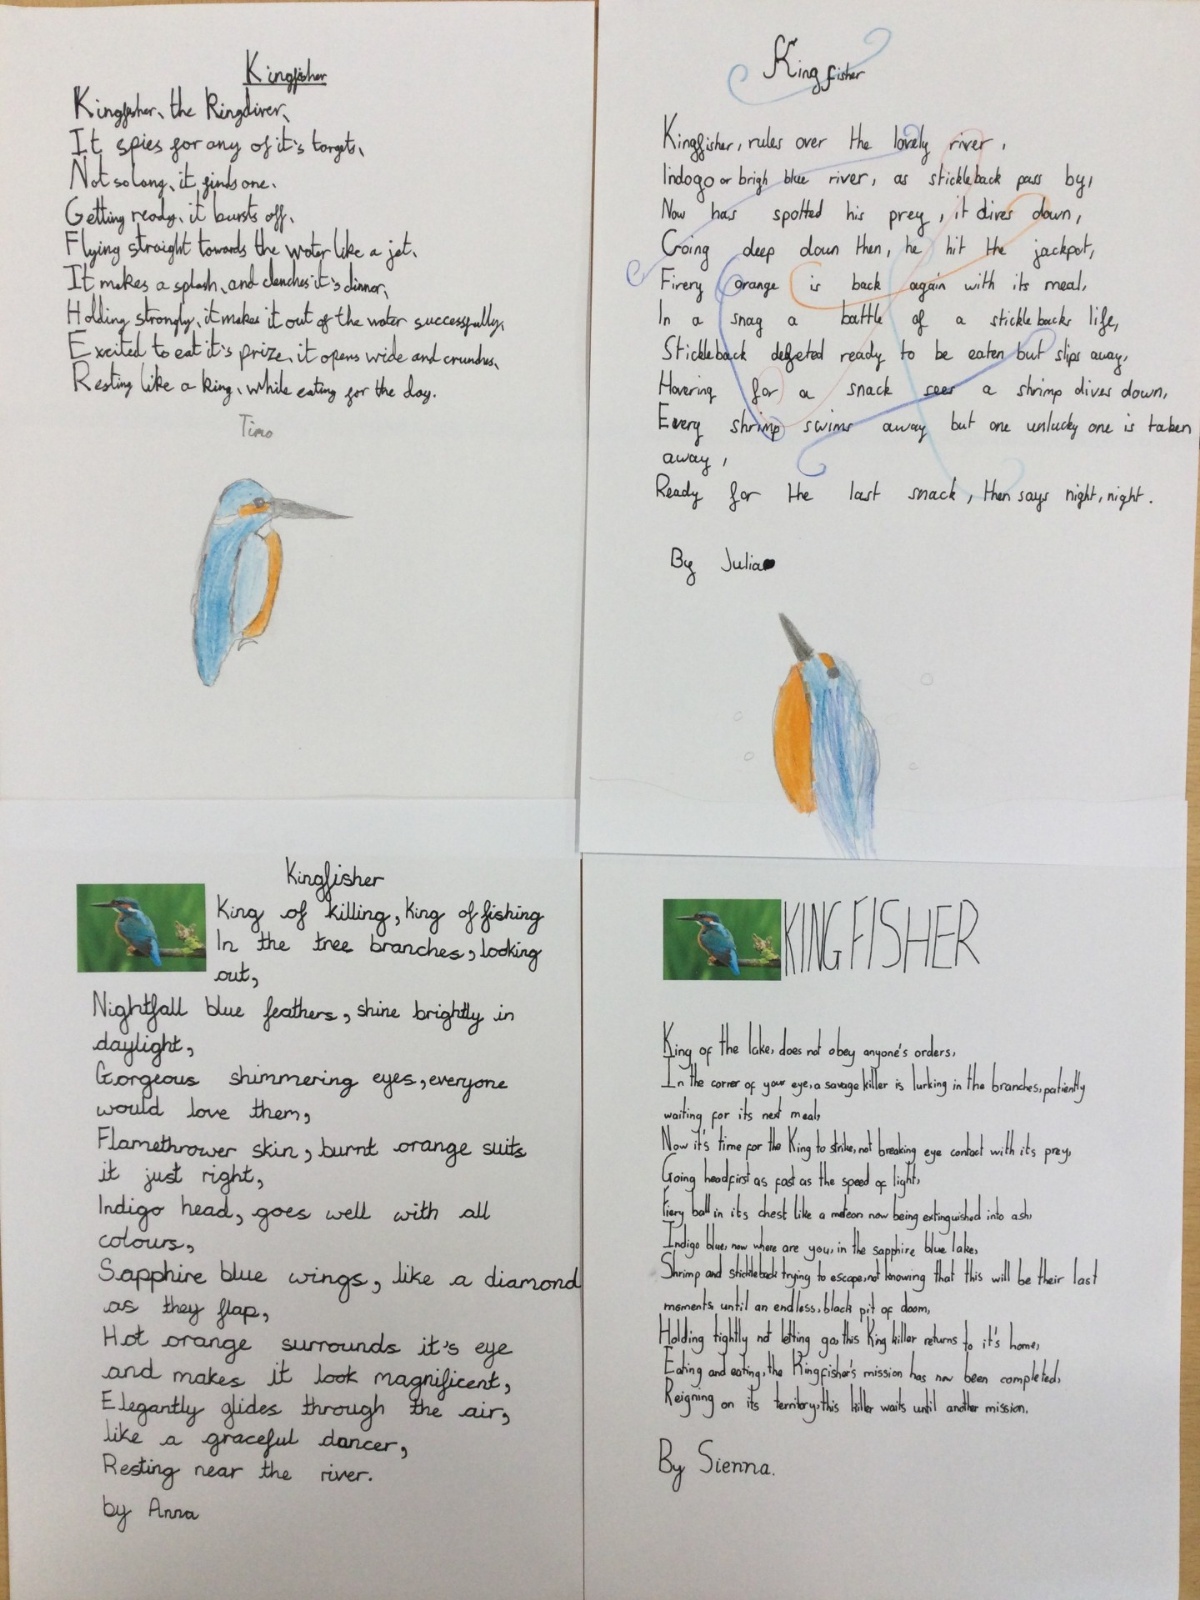 Kingfisher
Kingfisher, the Kingdiver,
It spies for any of it's targets,
Not so long, it finds one.
Getting ready, it bursts off,
Flying straight towards the water like a jet,
It makes a splash, and clenches it's dinner,
Holding strongly, it makes it out of the water successfully,
Excited to eat it's prize, it opens wide and crunches,
Resting like a king, while eating for the day.
Timo
Kingfisher
Kingfisher, rules over the lovely river,
Indogo or brigh blue river, as stickleback pass by,
Now has spotted his prey, it dives down,
Going deep down then, he hit the jackpot,
Firery orange is back again with its meal,
In a snag a battle of a stickle backs life,
Stickleback defeted ready to be eaten but slips away,
Hovering for a snack sees a shrimp dives down,
Every shrimp swims away but one unlucky one is taken
away,
Ready for the last snack, then says night, night.
By Julia
Kingfisher
King of killing, king of fishing
In the tree branches, looking
out,
Nightfall blue feathers, shine brightly in
daylight,
Gorgeous shimmering eyes, everyone
would love them,
Flamethrower skin, burnt orange suits
it just right,
Indigo head, goes well with all
colours,
Sapphire blue wings, like a diamond
as they flap,
Hot orange surrounds it's eye
and makes it look magnificent,
Elegantly glides through the air,
like a graceful dancer,
Resting near the river.
by Anna
KINGFISHER
King of the lake, does not obey anyone's orders,
In the corner of your eye, a savage killer is lurking in the branches, patiently
waiting for its next meal,
Now it's time for the King to strike, not breaking eye contact with its prey,
Going headfirst as fast as the speed of light,
Fiery ball in its chest like a meteor now being extinguished into ash,
Indigo blue, now where are you, in the sapphire blue lake,
Shrimp and stickleback trying to escape, not knowing that this will be their last
moments until an endless, black pit of doom,
Holding tightly not letting go, this King killer returns to it's home,
Eating and eating, the Kingfisher's mission has now been completed,
Reigning on its territory, this killer waits until another mission.
By Sienna.